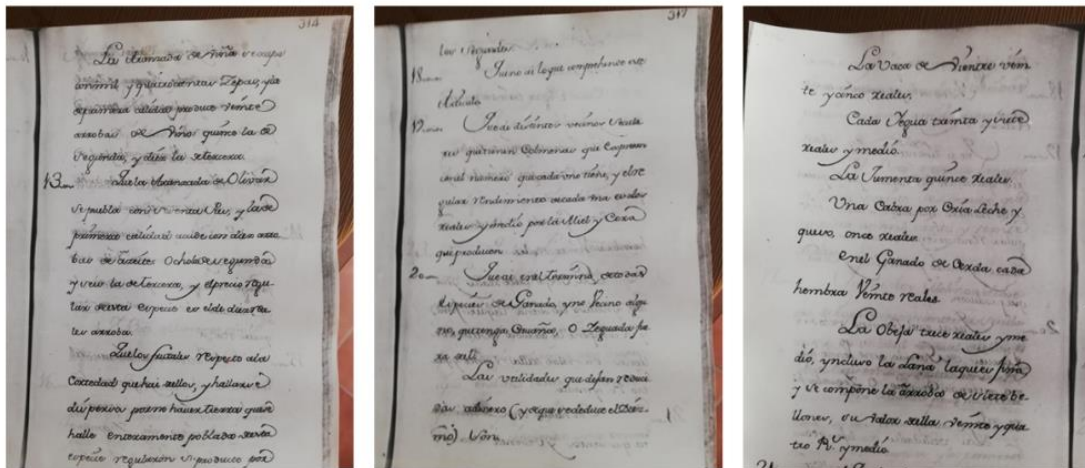 314
La Aranzada de Viña se ocupa
con mil y quatrocientas Zepas, y la
de primera calidad produce veinte
arrobas de Vino quince la de
segunda, y diez la de tercera.
13
Que la Aranzada de Olivar
se puebla con sesenta Pies, y la de
primera calidad acude con diez arro
bas de aceite Ocho la de segunda
y seis la de tercera, y el precio regu
lar de esta especie es el de diez rea
les arroba.
Que los frutales respecto a la
Cortedad que hai de ellos, y hallarse
dispersos pero no haver tierra que se
halle enteramente poblada de esta
especie regularon su producto por
317
18
Que no ai lo que comprehende este
Articulo
19
Que ai distintos vezinos
que tienen Colmenas que
en el numero que cada uno tiene, y el re
gular rendimiento de cada una es dos
reales y medio por la Miel y Cera
que producen
20
Que ai en el termino de todas
especies de Ganado, y no Vezino algu
no, que tenga O Yeguada fue
ra de el.
Las utilidades que dejan reduci
das a dinero (y de que se deduce el Diez
mo) Son,
La Vaca de Vientre vein
te y cinco reales,
Cada Yegua treinta y siete
reales y medio.
La Jumenta quince reales.
Una Cabra por Cria Leche y
queso, once reales.
en el Ganado de Cerda cada
hembra Veinte reales
La Obeja trece reales y me
dio, yncluso la Lana la que es fina
y se compone la arroba de siete be
llones, su valor de ella, veinte y qua
tro R.^s y medio.
21